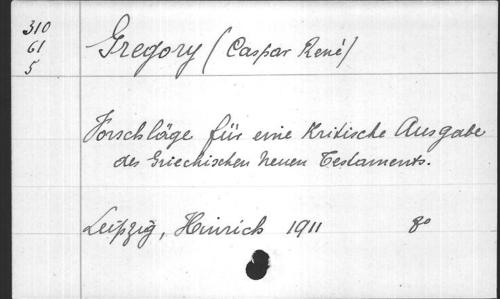 310
61
5
Gregory (Caspar René)
Vorschläge für eine Kritische Ausgabe
des Griechischen Neuen Testaments.
Leipzig, Hinrich 1911 8o